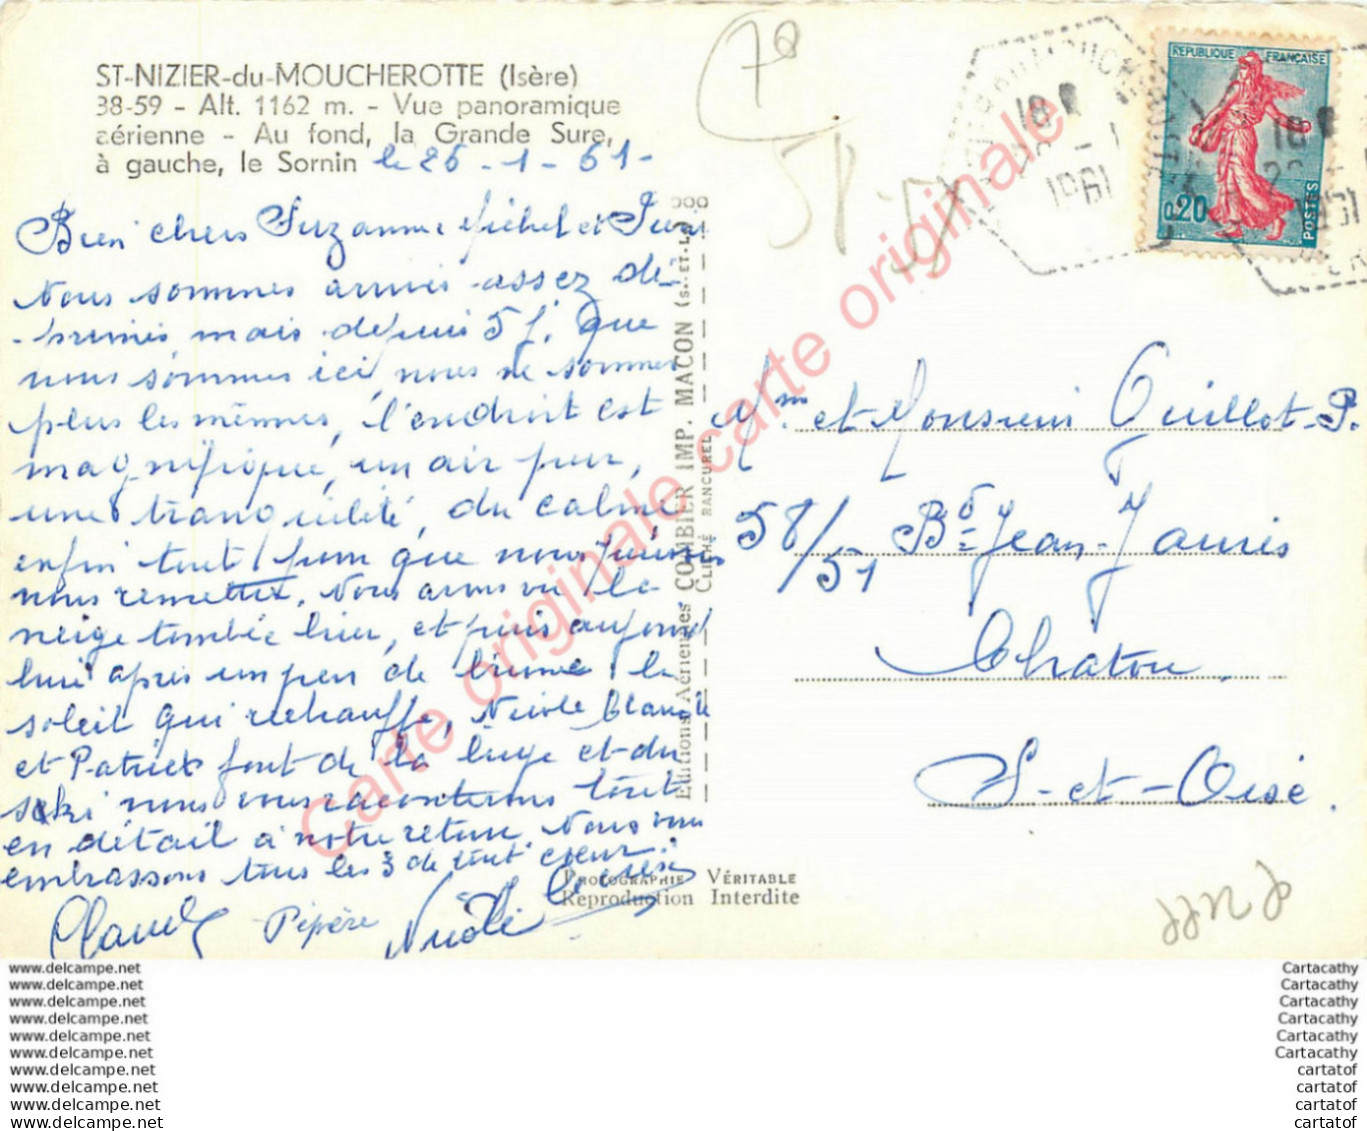 ST-NIZIER-du-MOUCHEROTTE (Isère)
38-59 - Alt. 1162 m. - Vue panoramique
aérienne - Au fond, la Grande Sure,
à gauche, le Sornin le 26-1-61-
Bien chers Suzanne Michel et
Nous sommes arrivés assez dé-
-primés mais depuis 5 j. que
nous sommes ici nous ne sommes
plus les mêmes, l'endroit est
magnifique, un air pur,
une tranquilité, du calme
enfin tout pour que nous puissions
nous remettre. Nous avons vu la
neige tombée hier, et puis aujourd
hui après un peu de brume le
soleil qui réchauffe, Nicole Claude
et Patrick font de la luge et du
ski nous vous raconterons tout
en détail à notre retour Nous vous
embrassons tous les 3 de tout cœur
Claude Pépère Nicole
78
58
REPUBLIQUE FRANÇAISE
0,20
POSTES
18
1961
18
Mme et Monsieur Guillot-P.
58/51 Bd Jean-Jaurès
Chatou
S-et-Oise.
Editions Aériennes COMBIER IMP. MACON (S.-ET-L.)
CLICHÉ RANCUREL
PHOTOGRAPHIE VÉRITABLE
Reproduction Interdite
Carte originale carte originale
www.delcampe.net
www.delcampe.net
www.delcampe.net
www.delcampe.net
www.delcampe.net
www.delcampe.net
www.delcampe.net
www.delcampe.net
www.delcampe.net
www.delcampe.net
Cartacathy
Cartacathy
Cartacathy
Cartacathy
Cartacathy
Cartacathy
cartatof
cartatof
cartatof
cartatof